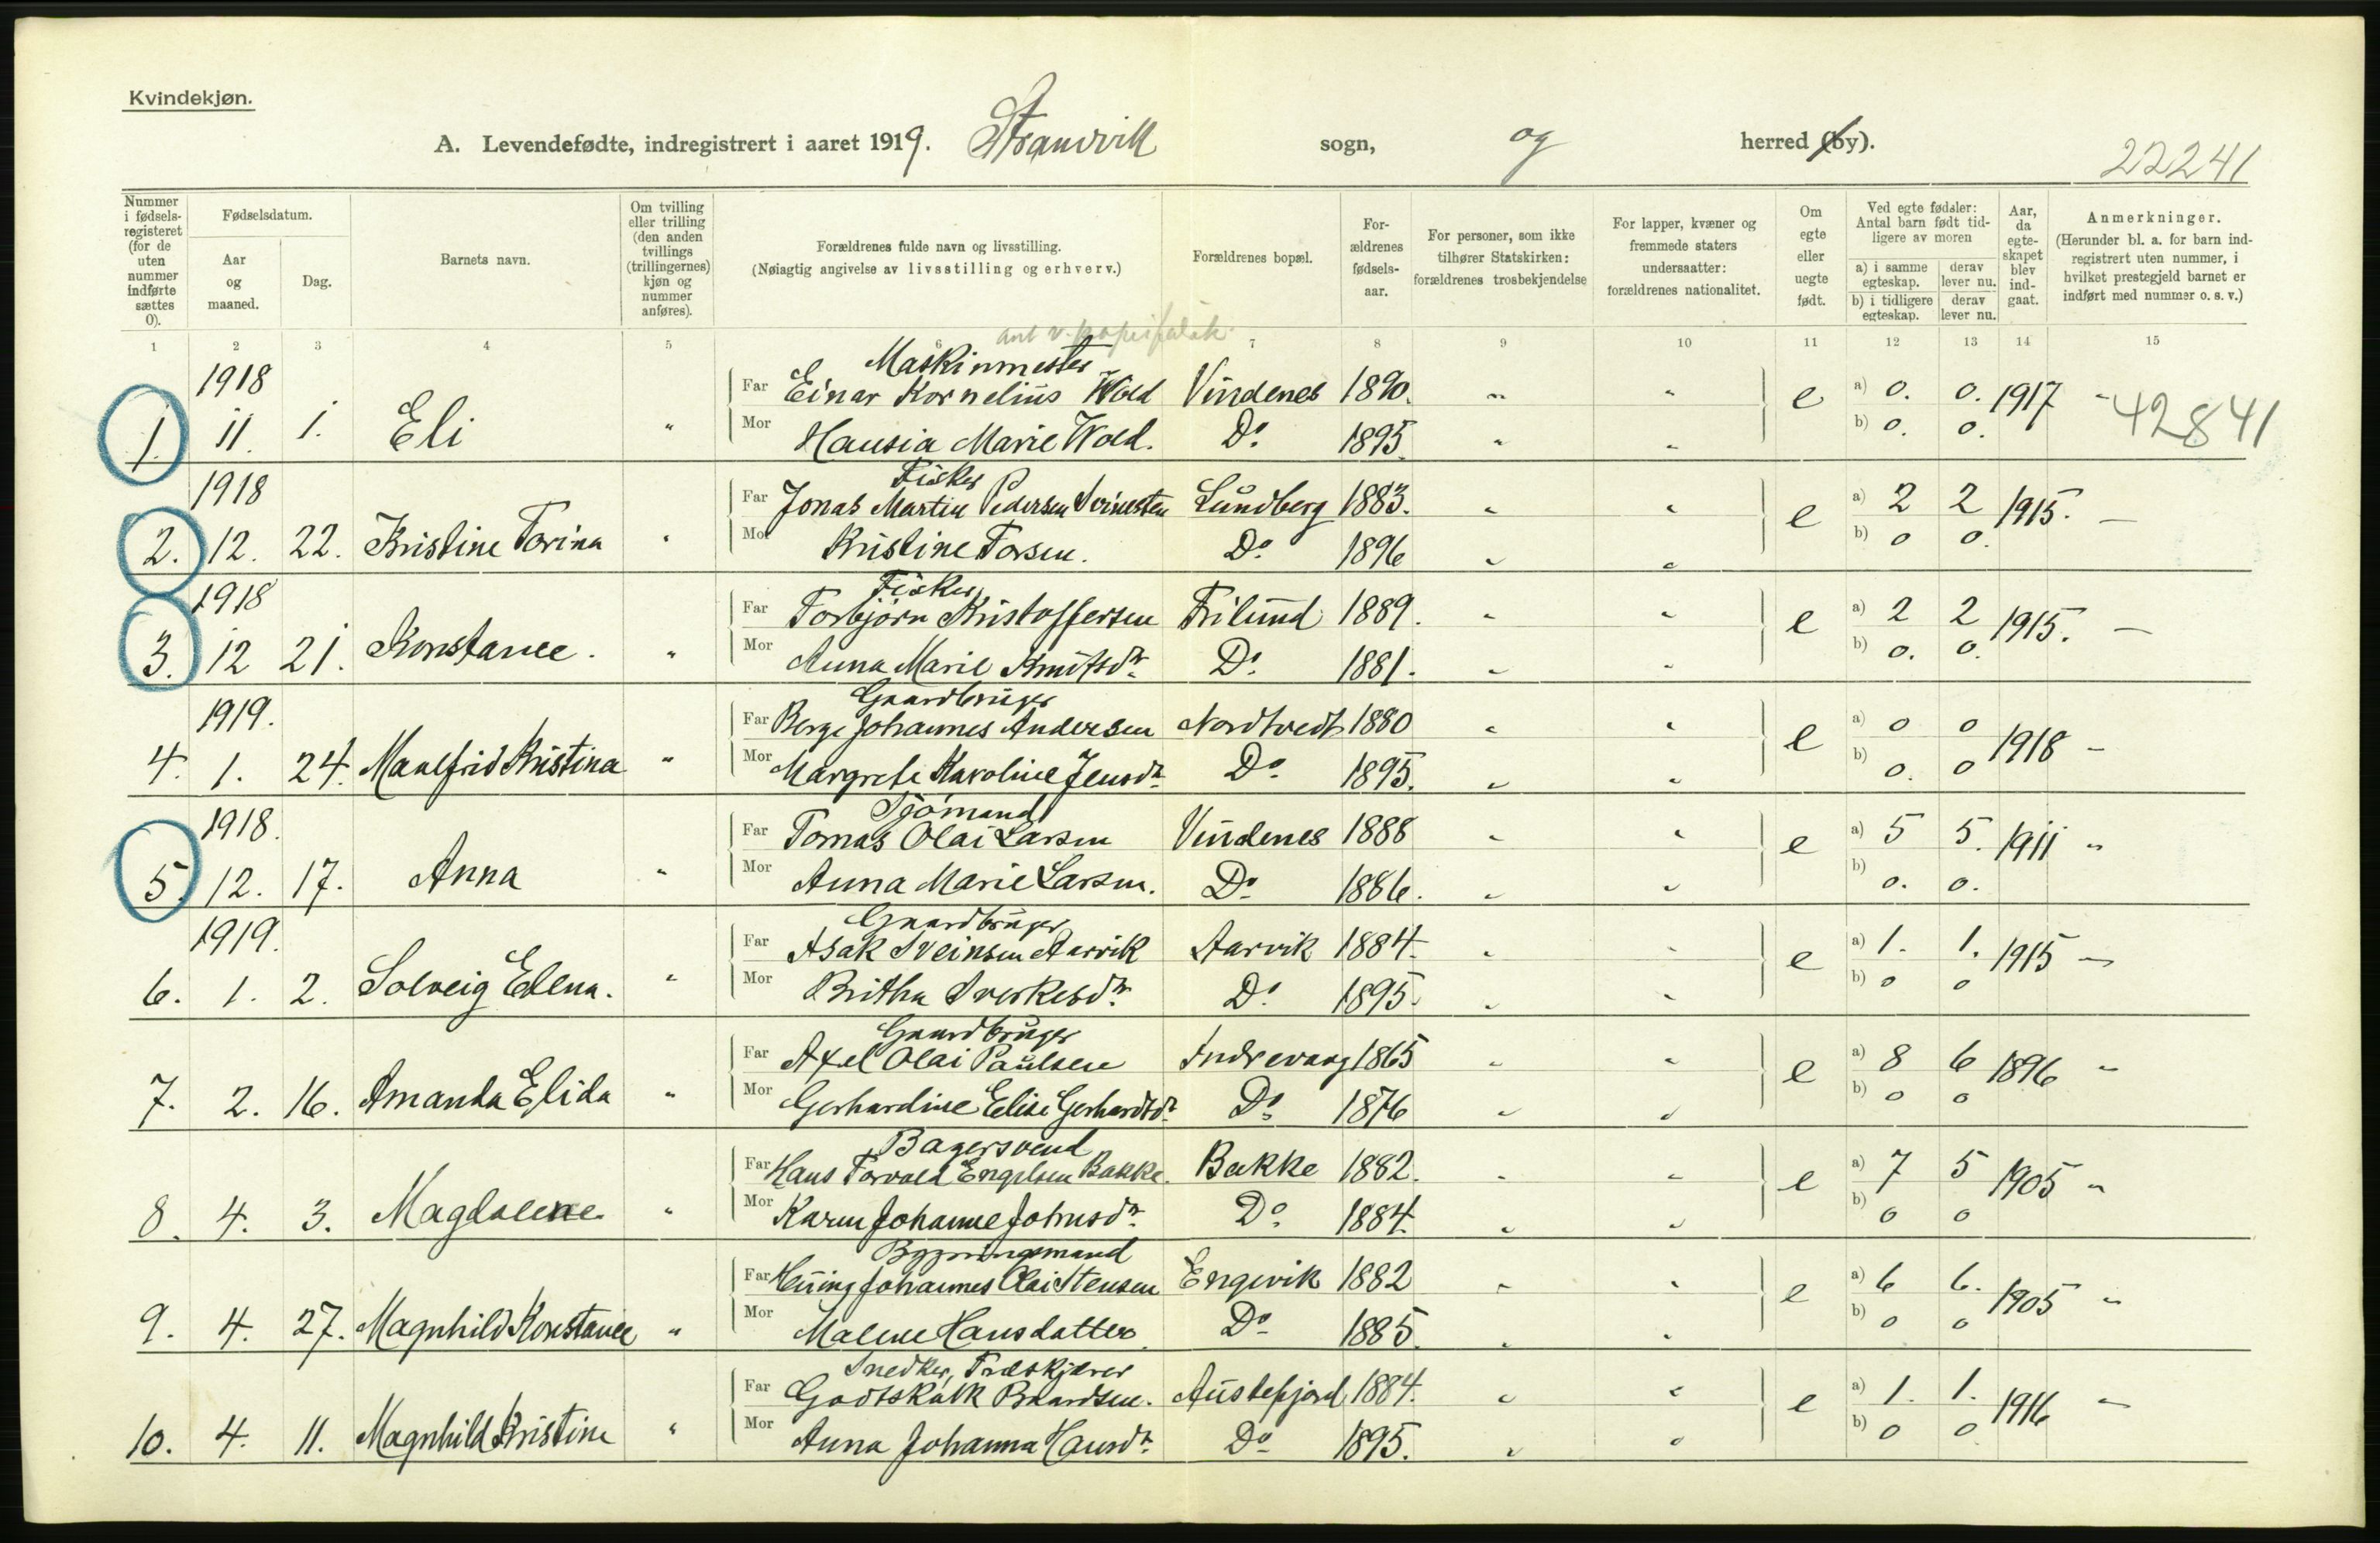 Kvindekjøn.
A. Levendefødte, indregistrert i aaret 1919. Strandvik sogn, og herred (by).
22241
Nummer i fødsels-registeret (for de uten nummer indførte sættes 0).
Fødselsdatum.
Aar og maaned.
Dag.
Barnets navn.
Om tvilling eller trilling (den anden tvillings (trillingernes) kjøn og nummer anføres).
Forældrenes fulde navn og livsstilling.
(Nøiagtig angivelse av livsstilling og erhverv.)
Forældrenes bopæl.
For-ældrenes fødsels-aar.
For personer, som ikke tilhører Statskirken: forældrenes trosbekjendelse
For lapper, kvæner og fremmede staters undersaatter: forældrenes nationalitet.
Om egte eller uegte født.
Ved egte fødsler: Antal barn født tid-ligere av moren
a) i samme egteskap. derav lever nu.
b) i tidligere egteskap. derav lever nu.
Aar, da egte-skapet blev ind-gaat.
Anmerkninger.
(Herunder bl. a. for barn ind-registrert uten nummer, i hvilket prestegjeld barnet er indført med nummer o. s. v.)
1 2 3 4 5 6 7 8 9 10 11 12 13 14 15
ant v. papirfabrik
1918 Maskinmester
Far Einar Kornelius Wold Vindenes 1890. " " e a) 0. 0. 1917 "
1. 11. 1. Eli " Mor Hansia Marie Wold. Do. 1895. " " b) 0. 0. 42841
1918 Fisker
Far Jonas Martin Pedersen Lundberg 1883. " " e a) 2 2 1915. —
2. 12. 22. Kristine Torina " Mor Kristine Torsen. Do. 1896 " " b) 0 0.
1918 Fisker
Far Torbjörn Kristoffersen Frilund 1889. " " e a) 2 2 1915. —
3. 12 21. Konstance. " Mor Anna Marie Knutsdr. Do. 1881. " " b) 0. 0.
1919. Gaardbruger
Far Berge Johannes Andersen Nordtvedt 1880 " " e a) 0 0 1918 —
4. 1. 24. Maalfrid Kristina " Mor Margrete Karoline Jensdr. Do. 1895. " " b) 0. 0
1918. Sjömand
Far Tomas Olai Larsen Vindenes 1888 " " e a) 5 5. 1911 "
5. 12. 17. Anna " Mor Anna Marie Larsen. Do. 1886. " " b) 0. 0.
1919. Gaardbruger
Far Asak Sveinsen Aarvik Aarvik 1884. " " e a) 1. 1. 1915 —
6. 1. 2. Solveig Elena. " Mor Britha Sverkesdr. Do. 1895. " " b) 0 0
Gaardbruger
Far Axel Olai Paulsen Indrevaag 1865 " " e a) 8 6 1896 "
7. 2. 16. Amanda Elida " Mor Gerhardine Elise Gerhardtdr. Do. 1876 " " b) 0 0
Bagersvend
Far Hans Torvald Engelsen Bakke. Bakke 1882. " " e a) 7 5 1905 "
8. 4. 3. Magdalene " Mor Karen Johanne Johnsdr. Do. 1884. " " b) 0 0
Bygningsmand
Far Johannes Olai Stensen Engevik 1882 " " e a) 6 6. 1905 "
9. 4. 27. Magnhild Konstance " Mor Malene Hansdatter. Do. 1885. " " b) 0 0
Snedker, Træskjærer
Far Godtskalk Baardsen. Austefjord 1884. " " e a) 1. 1. 1916 "
10. 4. 11. Magnhild Kristine " Mor Anna Johanna Hansdr. Do. 1895. " " b) 0 0